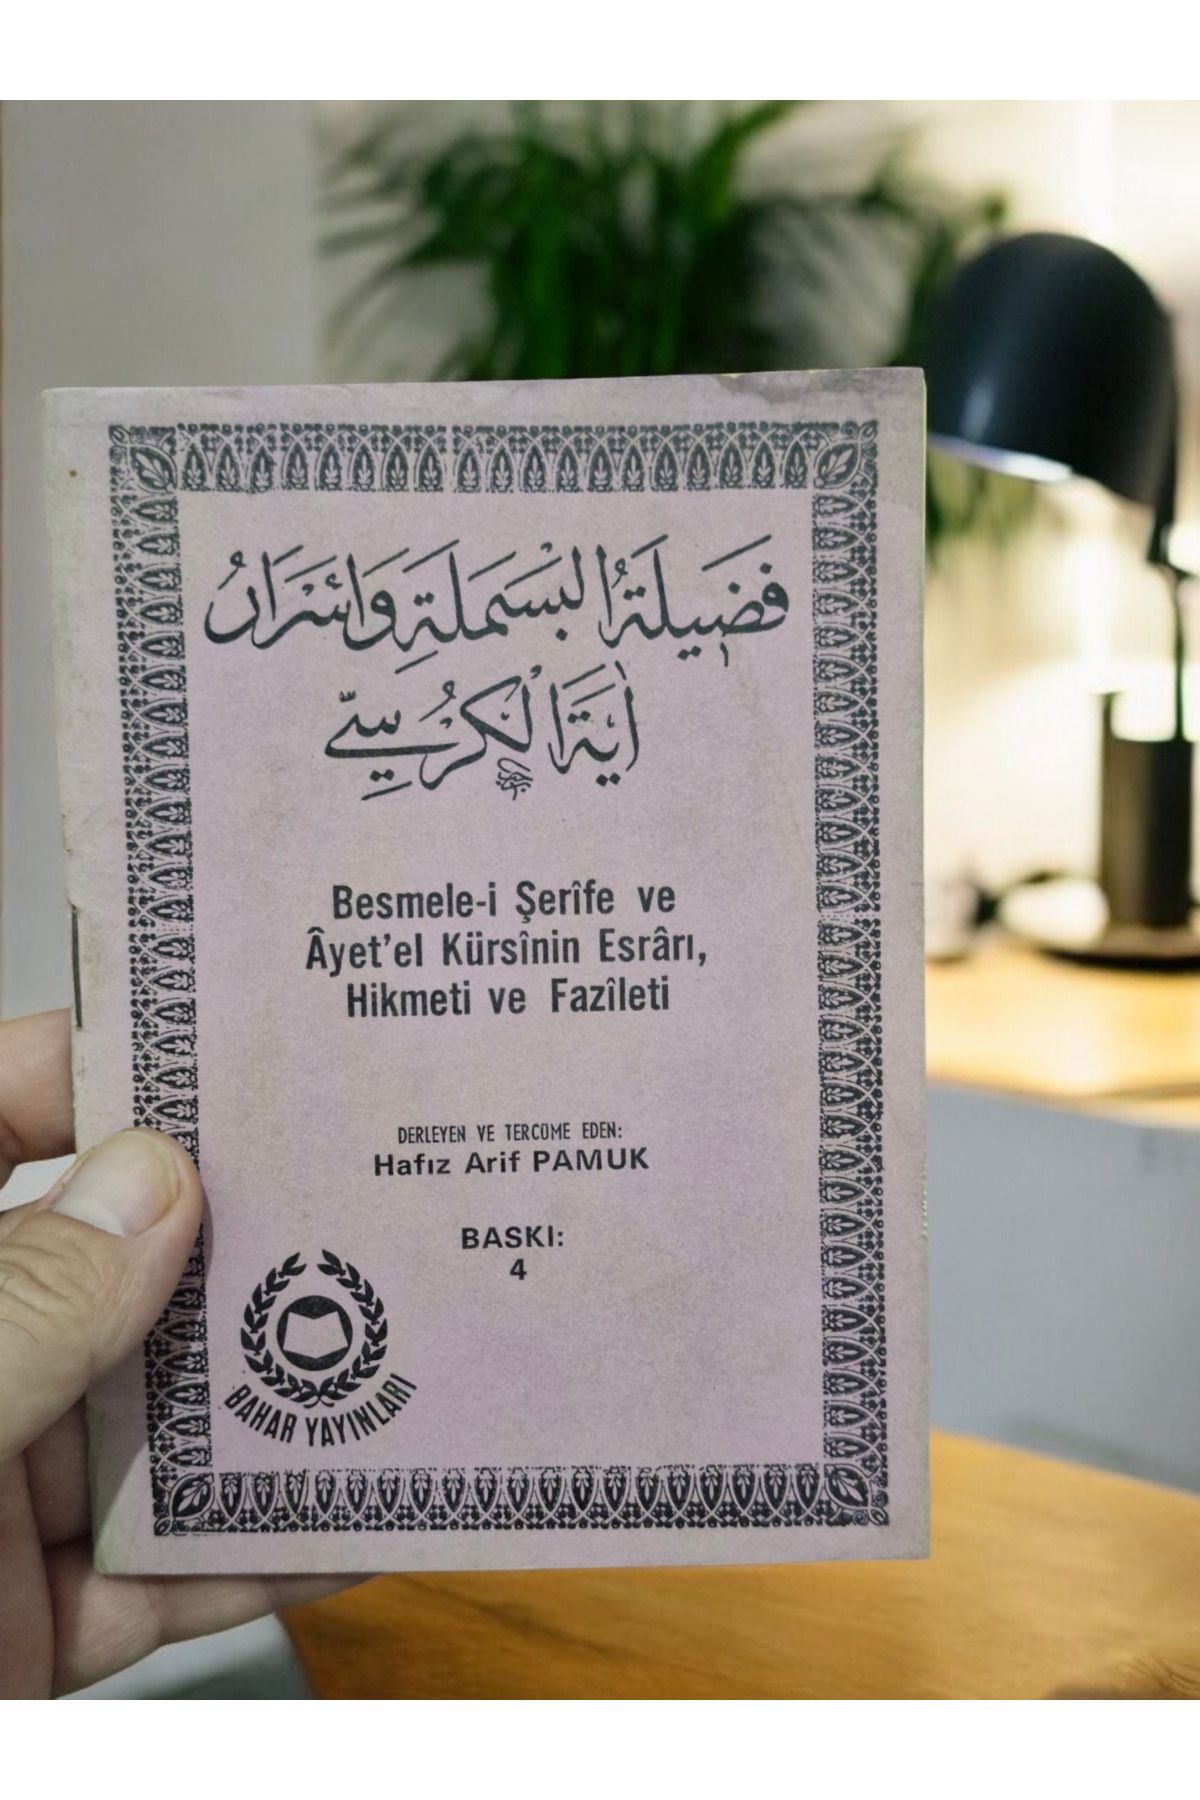 فَضِيلَةُ الْبَسْمَلَةِ وَاَسْرَارُ
اٰيَةَ الْكُرْسِيِّ
Besmele-i Şerîfe ve
Âyet'el Kürsînin Esrârı,
Hikmeti ve Fazîleti
DERLEYEN VE TERCÜME EDEN:
Hafız Arif PAMUK
BASKI:
4
BAHAR YAYINLARI